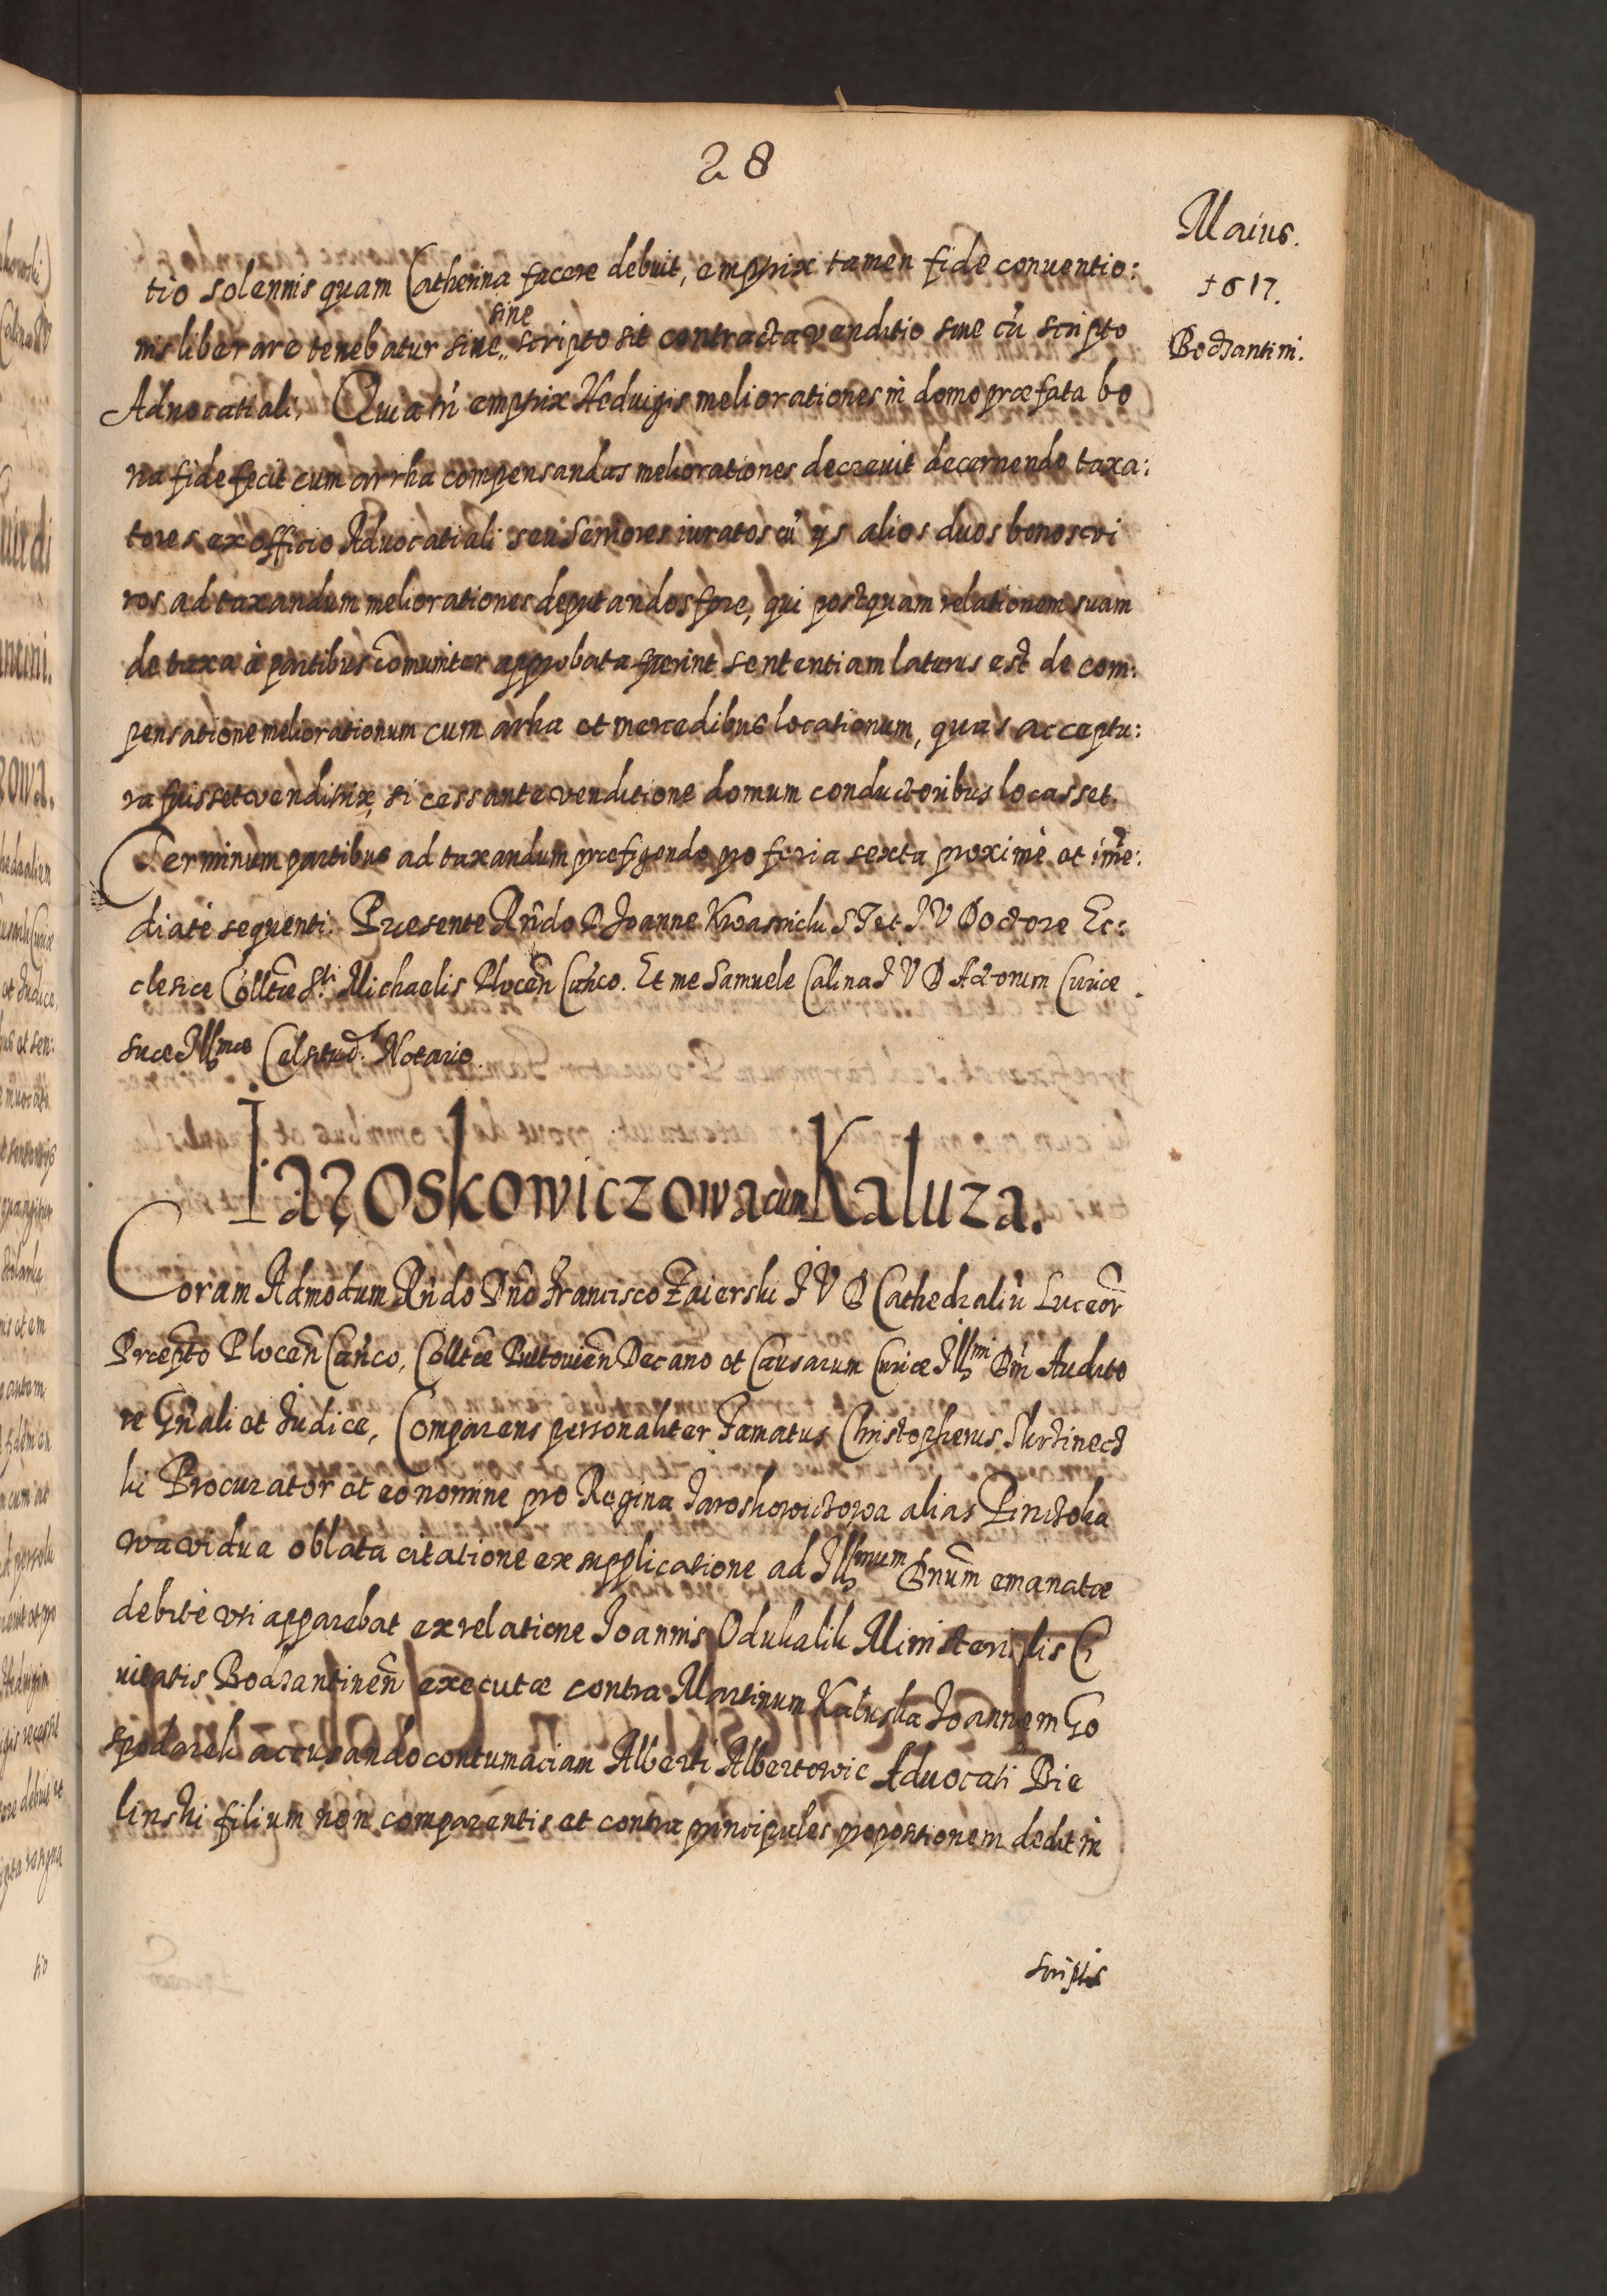 28
Maius.
1617.
Bodzantini.
tio solennis quam Catherina facere debuit, emptrix tamen fide conuentio:
nis liberare tenebatur siue sine scripto sit contracta venditio siue cũ scripto
Aduocatiali, Quia tñ emptrix Heduigis meliorationes in domo præfata bo
na fide fecit cum arrha compensandas meliorationes decreuit decernendo taxa:
tores ex officio Aduocatiali seu Seniores iuratos cũ ijs alios duos bonos vi
ros ad taxandum meliorationes deputandos fore, qui postquam relationem suam
de taxa à partibus com̃uniter approbata fecerint sententiam laturus est de com:
pensatione meliorationum cum arha et mercedibus locationum, quas acceptu:
ra fuisset venditrix, si cessante venditione domum conductoribus locasset.
Terminum partibus ad taxandum præfigendo pro feria sexta proximè et im̃e:
diatè sequenti. Præsente Rñdo D Joanne Kwasnicki S T et J V Doctore Ec:
clesiæ Colltæ Sti Michaelis Plocen̄ Cañco. Et me Samuele Calina J V D Actorum Curiæ
suæ Illmæ Celsitud: Notario.
Jaroskowiczowa cum Kaluza.
Coram Admodum Rñdo Dño Francisco Zaierski J V D Cathedraliũ Luceor̄
Præpto Plocen̄ Cañco, Colltæ Pultouien̄ Decano et Causarum Curiæ Illmi Dñi Audito
re Gñali et Judice, Comparens personaliter Famatus Christopherus
ki Procurator et eo nomine pro Regina Jaroskowiczowa alias
wa vidua oblata citatione ex supplicatione ad Illmum Dnum̃ emanatæ
debitè vti apparebat ex relatione Joannis Odukalik Ministerialis Ci
uitatis Bodzantinen̄ executæ contra Martinum Kaluska Joannem Go
spodarek accusando contumaciam Alberti Albertowic Aduocati Bie
linski filium non comparentis et contra principales propositionem dedit in
scriptis